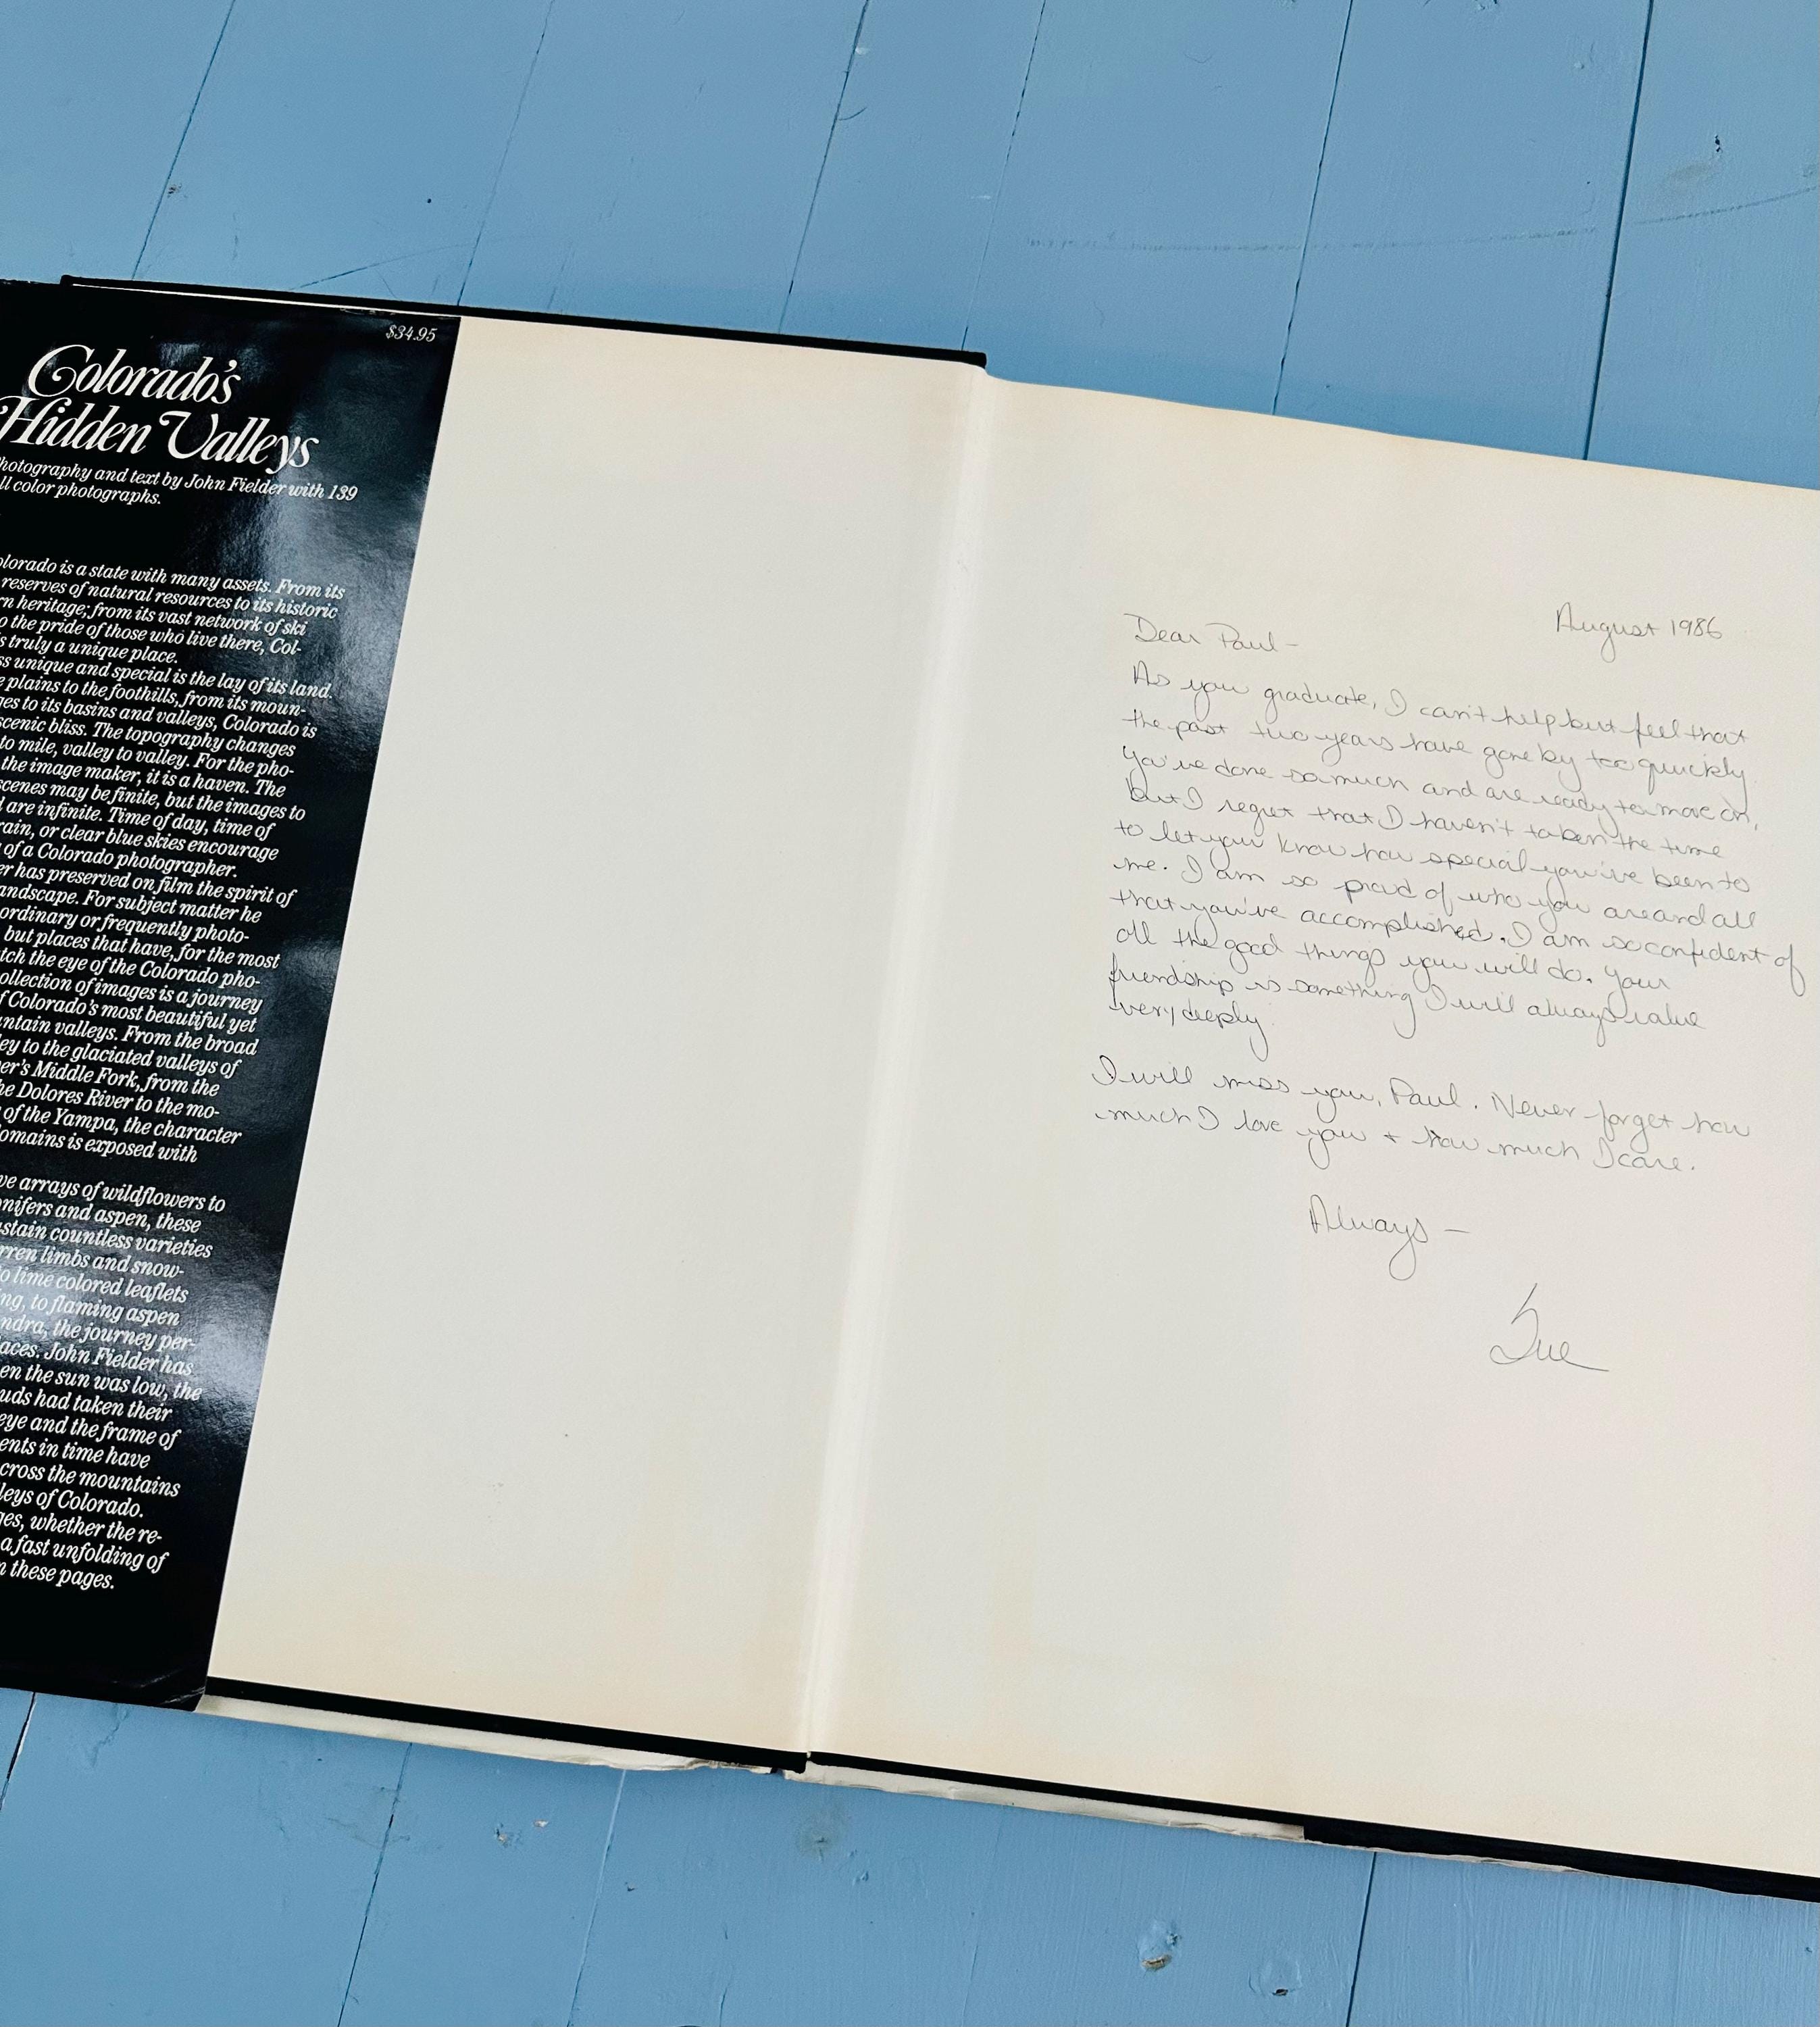 $34.95
Colorado's
Hidden Valleys
hotography and text by John Fielder with 139
ll color photographs.
olorado is a state with many assets. From its
reserves of natural resources to its historic
rn heritage; from its vast network of ski
o the pride of those who live there, Col-
s truly a unique place.
ss unique and special is the lay of its land.
e plains to the foothills, from its moun-
ges to its basins and valleys, Colorado is
scenic bliss. The topography changes
to mile, valley to valley. For the pho-
the image maker, it is a haven. The
scenes may be finite, but the images to
d are infinite. Time of day, time of
rain, or clear blue skies encourage
of a Colorado photographer.
er has preserved on film the spirit of
andscape. For subject matter he
ordinary or frequently photo-
but places that have, for the most
tch the eye of the Colorado pho-
ollection of images is a journey
f Colorado's most beautiful yet
ntain valleys. From the broad
ley to the glaciated valleys of
er's Middle Fork, from the
he Dolores River to the mo-
of the Yampa, the character
omains is exposed with
ve arrays of wildflowers to
nifers and aspen, these
stain countless varieties
rren limbs and snow-
o lime colored leaflets
ng, to flaming aspen
ndra, the journey per-
laces. John Fielder has
en the sun was low, the
uds had taken their
eye and the frame of
ents in time have
cross the mountains
leys of Colorado.
ges, whether the re-
a fast unfolding of
n these pages.
August 1986
Dear Paul-
As you graduate, I can't help but feel that
the past two years have gone by too quickly.
You've done so much and are ready to move on,
but I regret that I haven't taken the time
to let you know how special you've been to
me. I am so proud of who you are and all
that you've accomplished. I am so confident of
all the good things you will do. Your
friendship is something I will always value
very deeply.
I will miss you, Paul. Never forget how
much I love you + how much I care.
Always-
Sue